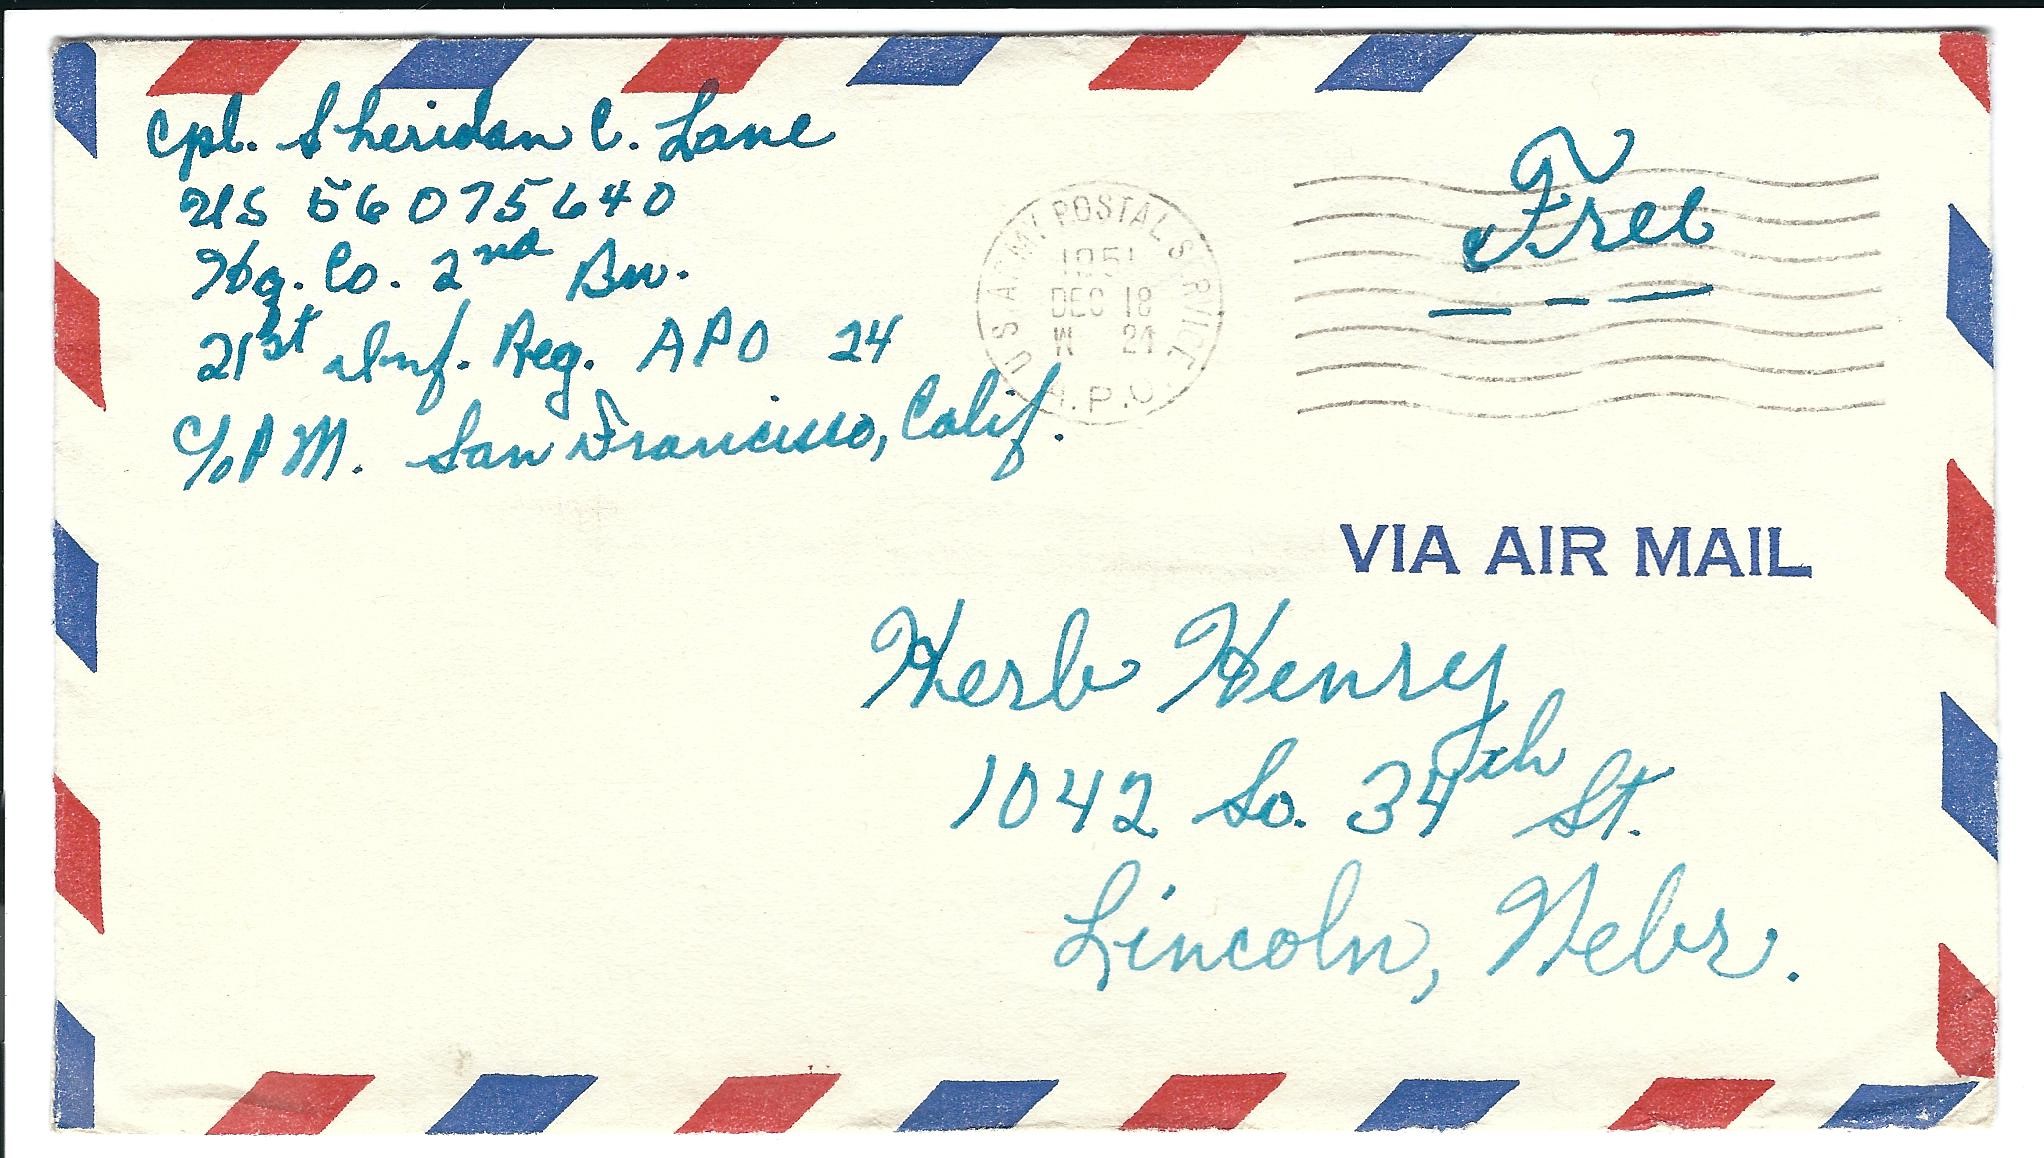 Cpl. Sheridan C. Lane
US 56075640
Hq. Co. 2nd Bn.
21st Inf. Reg. APO 24
c/o P M. San Francisco, Calif.
U.S. ARMY POSTAL SERVICE
1951
DEC 18
A.P.O.
Free
VIA AIR MAIL
Herb Henry
1042 So. 34th St.
Lincoln, Nebr.